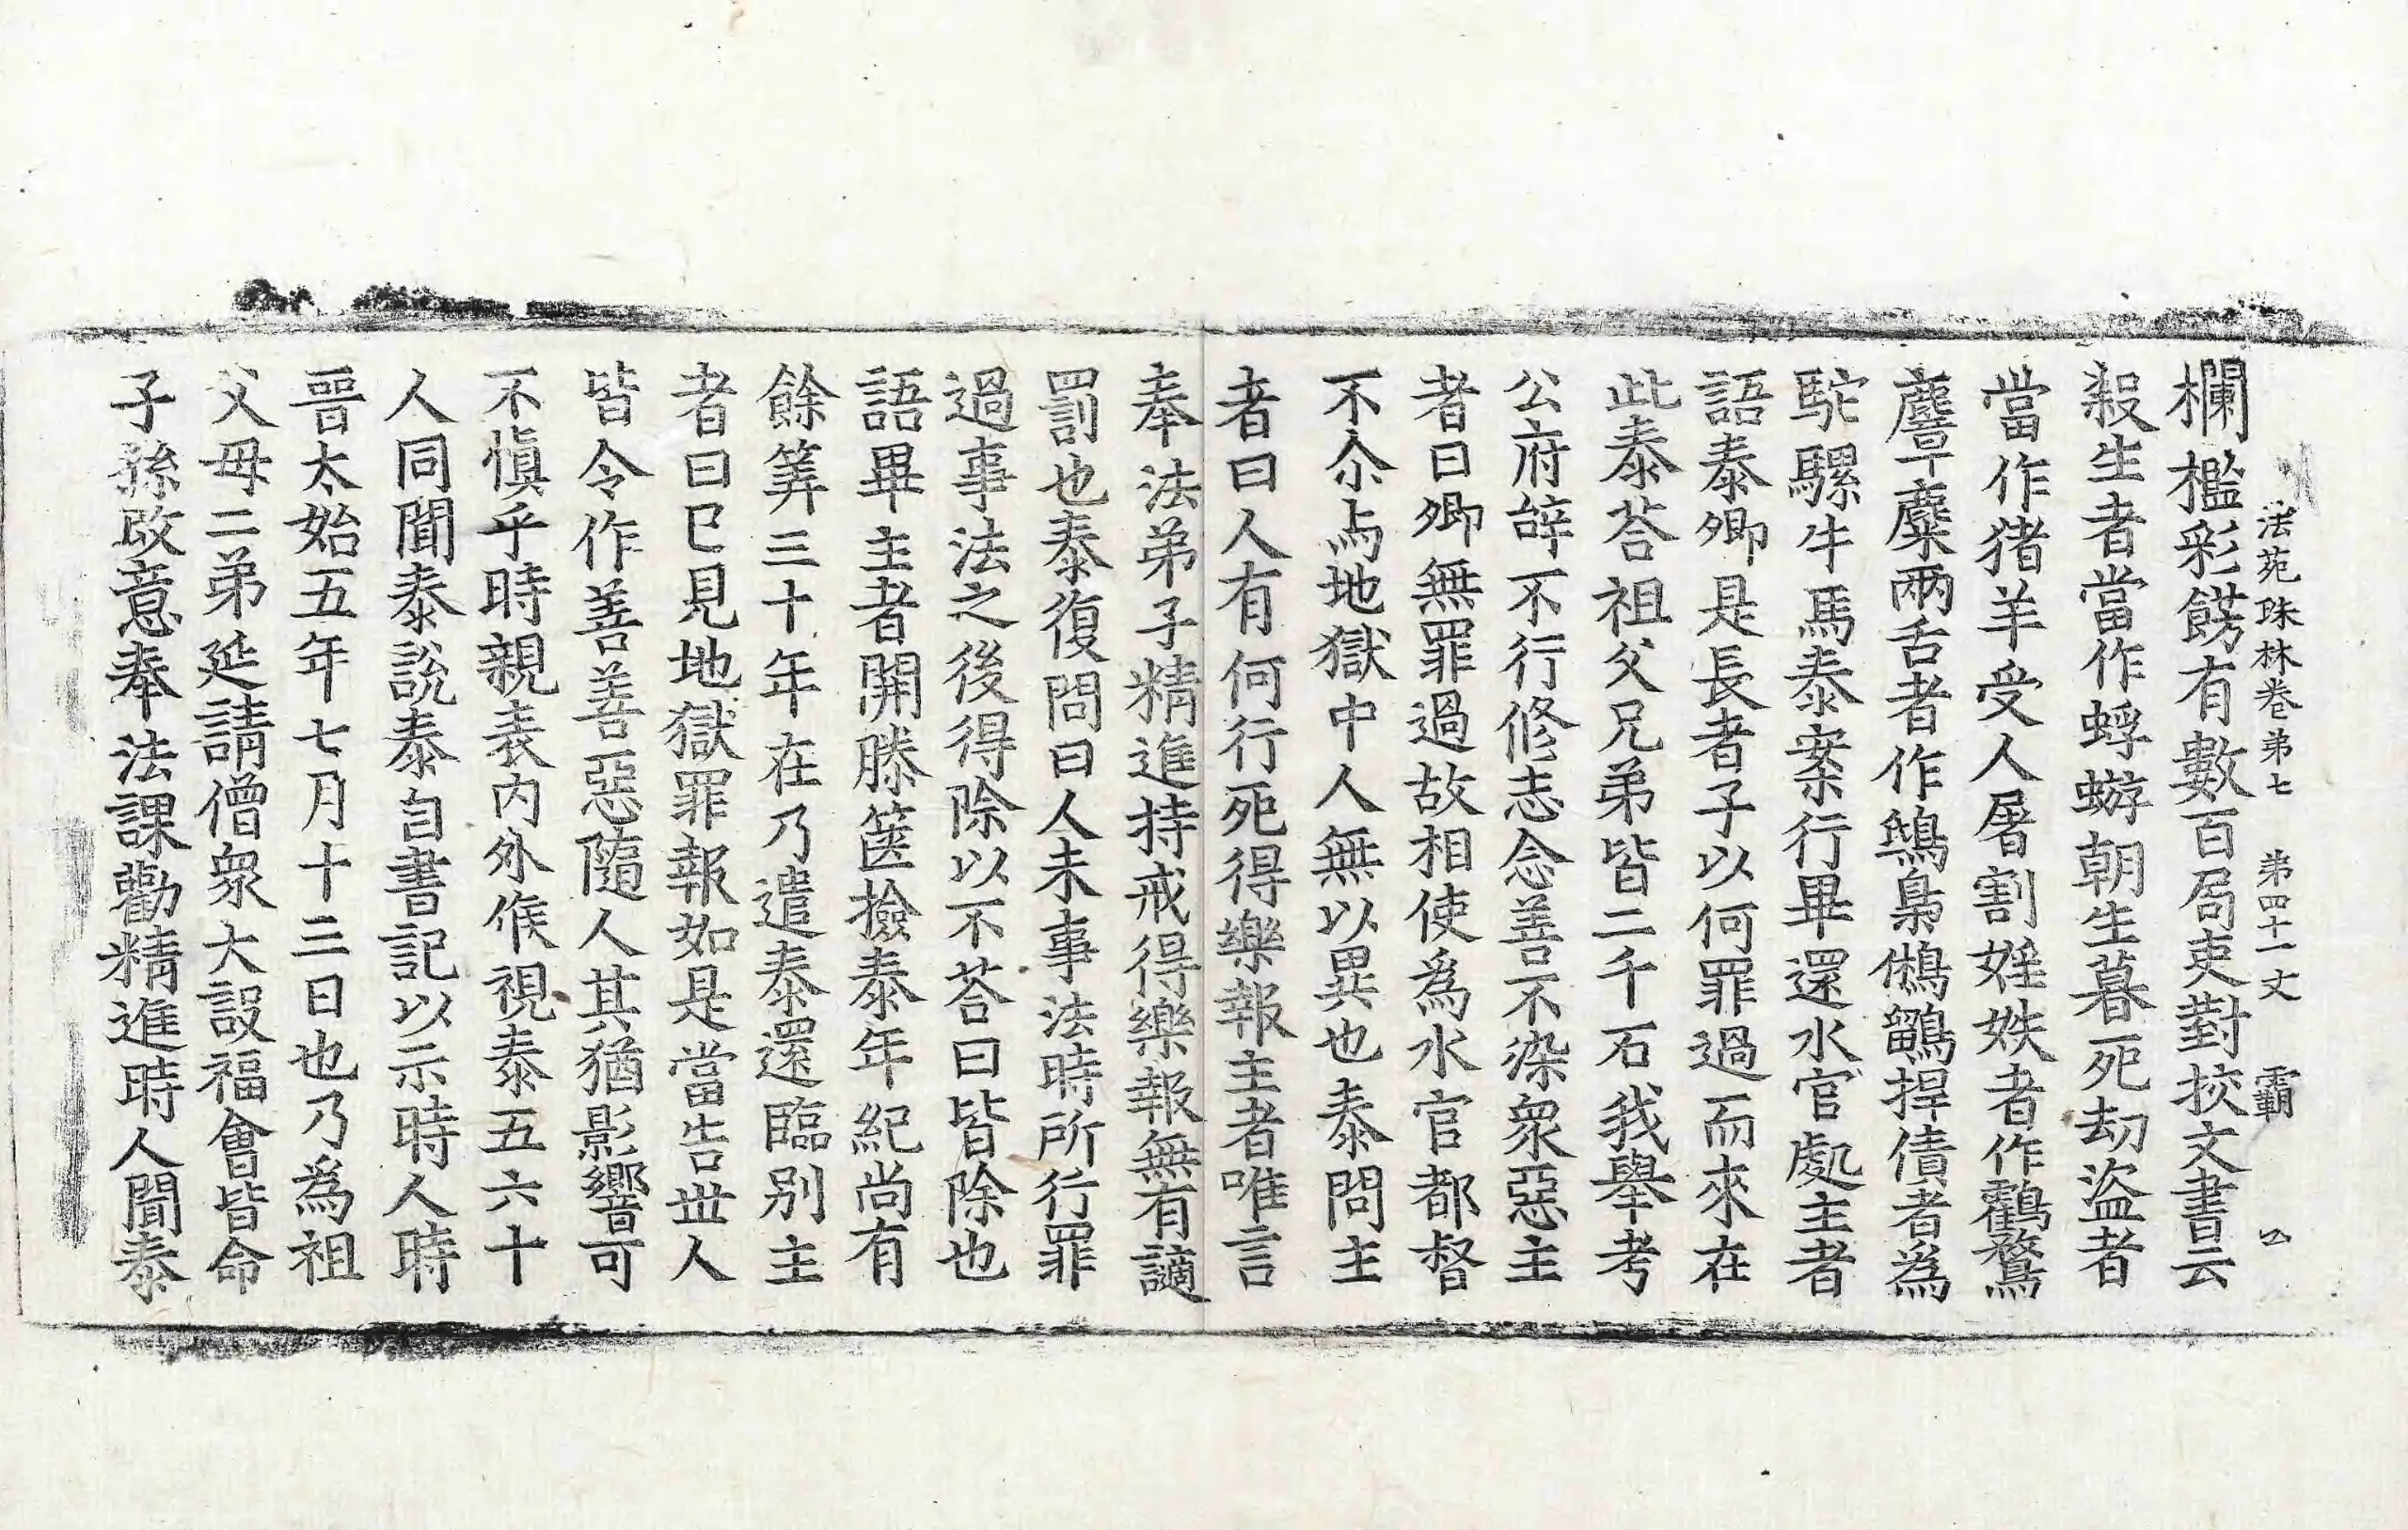 法苑珠林卷第七 第四十一丈 霸
欄檻彩餝有數百局吏對挍文書云
殺生者當作蜉蝣朝生暮死劫盜者
當作猪羊受人屠割婬妷者作鸖鶩
麞麋兩舌者作鵄梟鵂鶹捍債者為
駝騾牛馬泰案行畢還水官處主者
語泰卿是長者子以何罪過而來在
此泰荅祖父兄弟皆二千石我舉考
公府辝不行修志念善不染衆惡主
者曰卿無罪過故相使爲水官都督
不尒与地獄中人無以異也泰問主
者曰人有何行死得樂報主者唯言
奉法弟子精進持戒得樂報無有謫
罰也泰復問曰人未事法時所行罪
過事法之後得除以不荅曰皆除也
語畢主者開縢篋撿泰年紀尚有
餘筭三十年在乃遣泰還臨別主
者曰已見地獄罪報如是當告丗人
皆令作善善惡隨人其猶影響可
不慎乎時親表内外候視泰五六十
人同聞泰說泰自書記以示時人時
晉太始五年七月十三日也乃為祖
父母二弟延請僧衆大設福會皆命
子孫改意奉法課勸精進時人聞泰